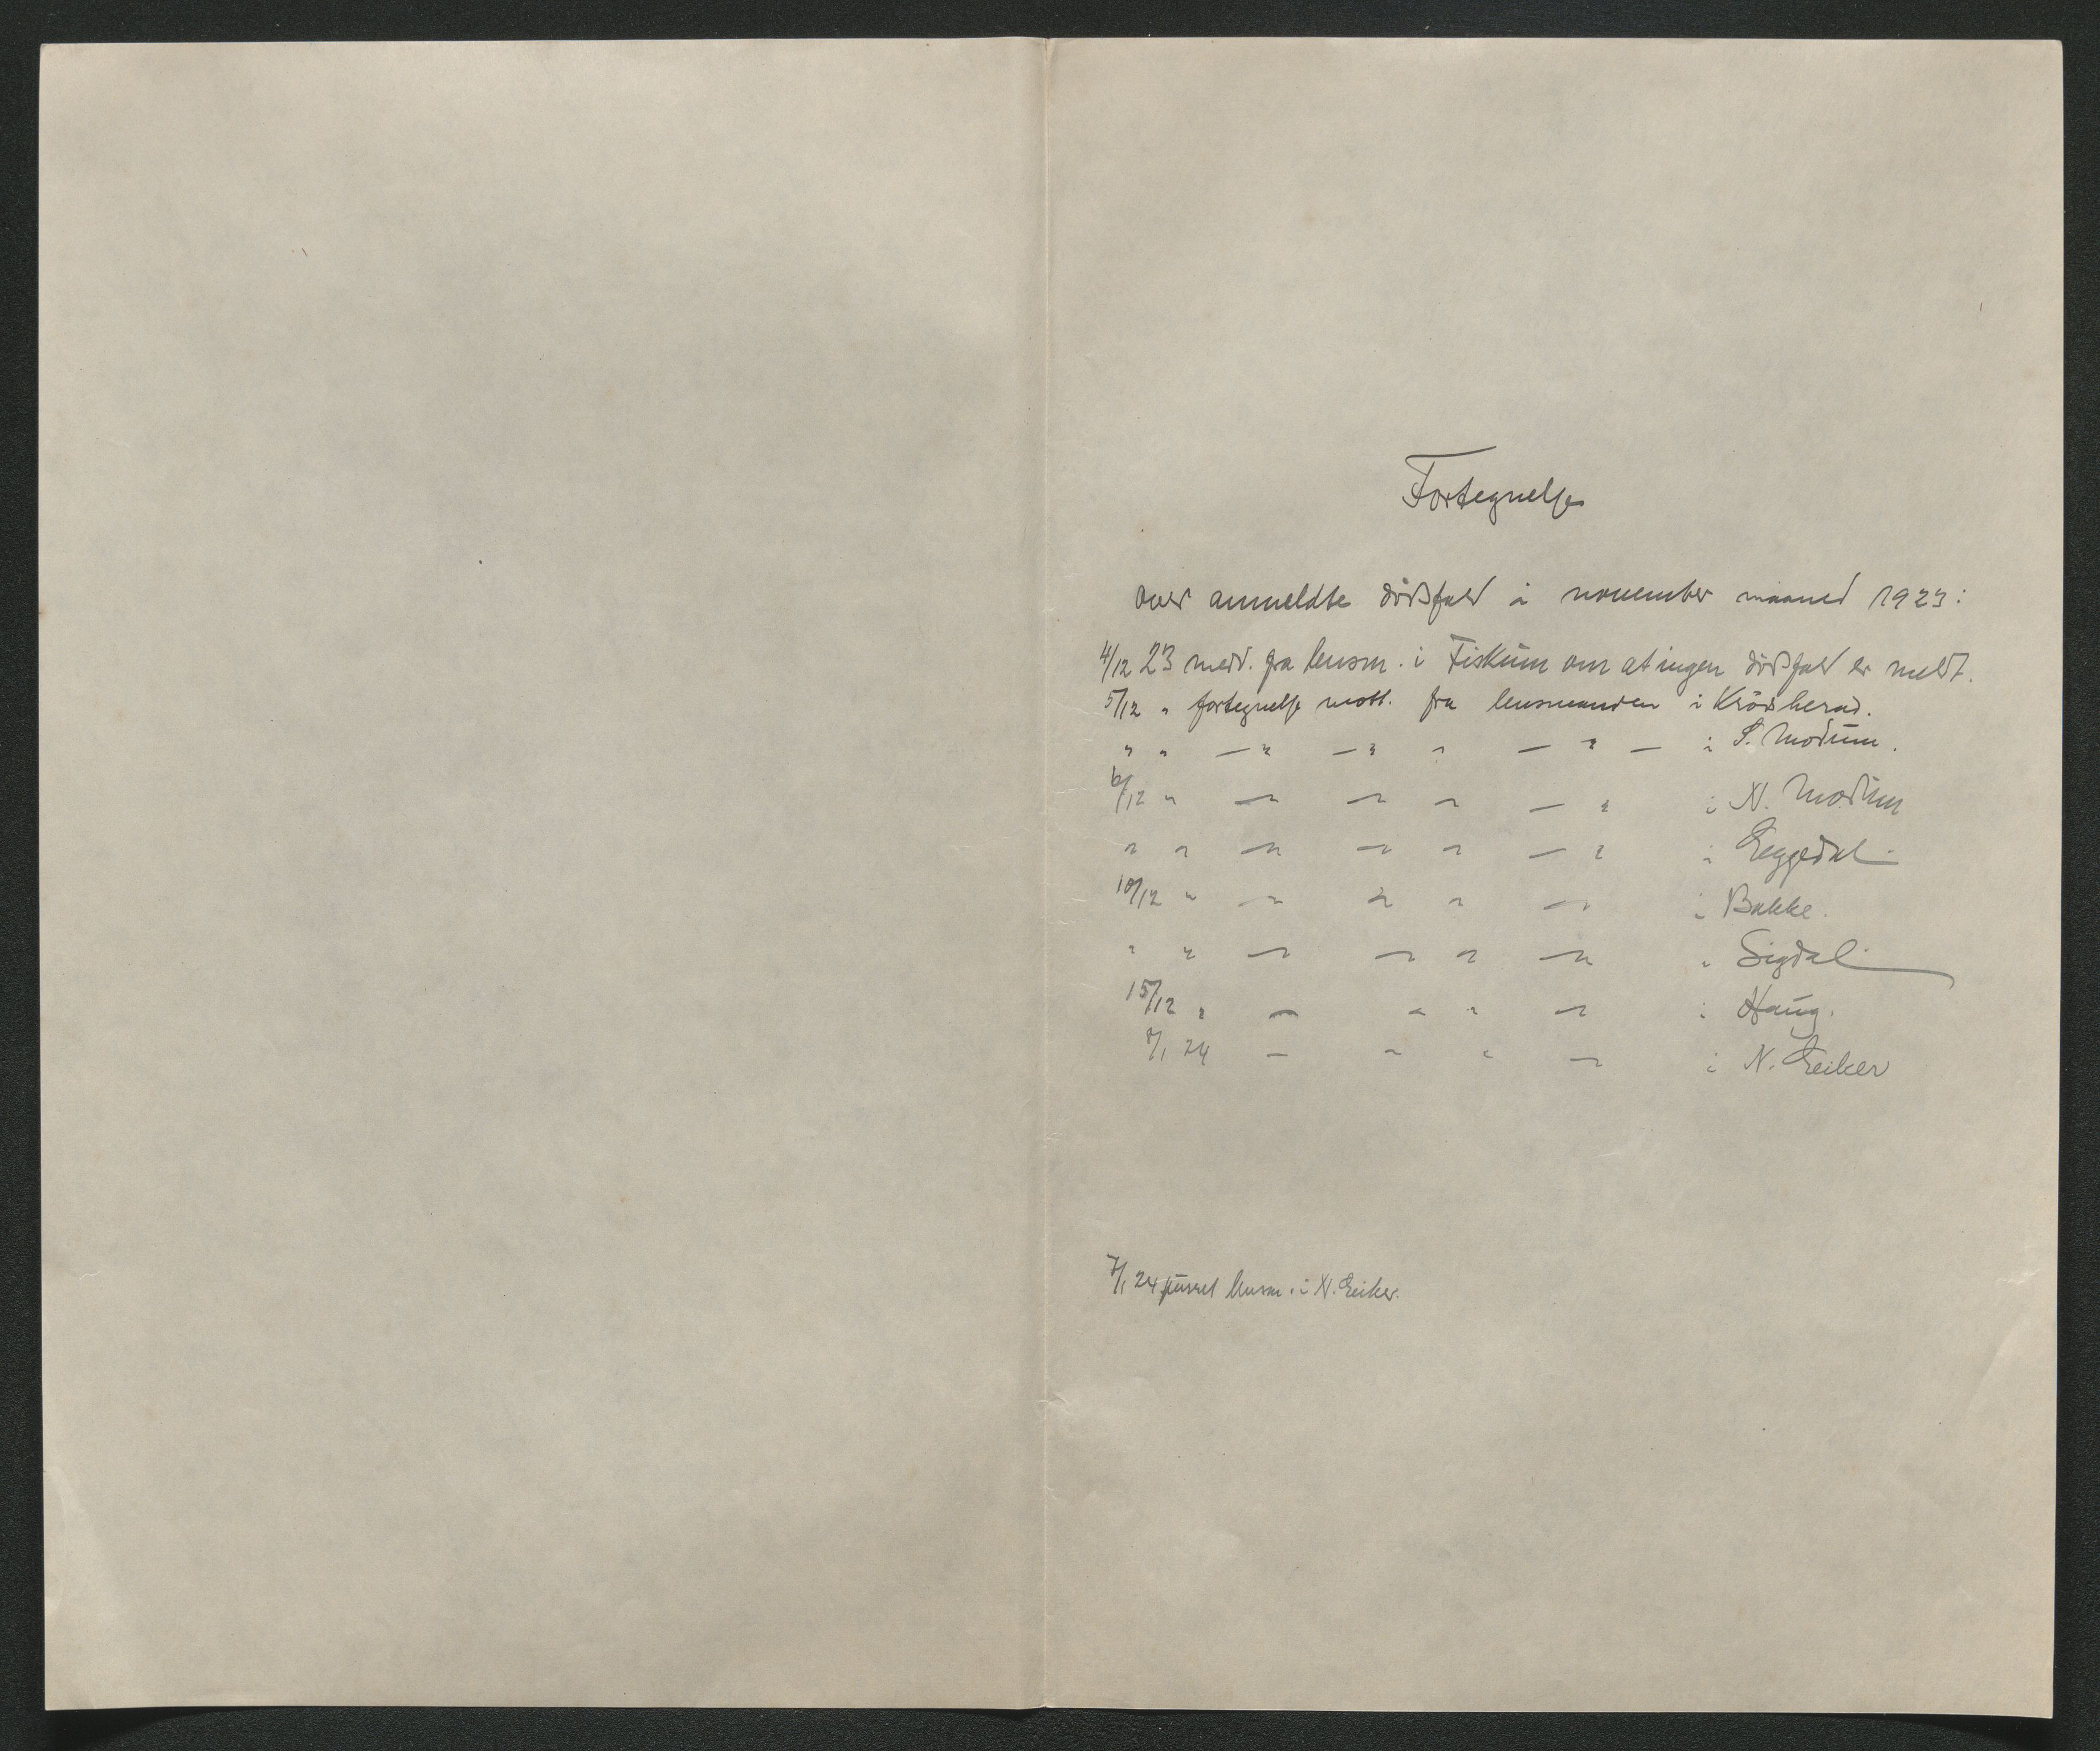 Fortegnelse
over anmeldte dödsfald i november maaned 1923:
4/12 23 medd. fra lensm. i Fiskum om at ingen dödsfald er meldt.
5/12 " fortegnelse mott. fra lensmanden i Krödsherad.
" " — " — " " — " — i S. Modum.
6/12 " — " — " " — " i N. Modum
" " — " — " " — " i Eggedal.
10/12 " — " — " " — " i Bakke.
" " — " — " " — " i Sigdal.
15/12 " — " " — " i Haug.
/1 24 — " — " " — " i N. Eiker
7/1 24 purret lensm. i N. Eiker.